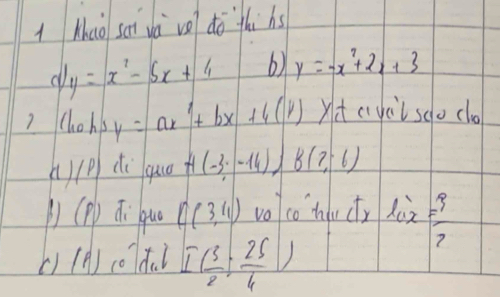 1 Khảo sát và vẽ đồ thị hs
a) y = x² - 5x + 4 b) y = -x² + 2x + 3
2 Cho hs y = ax² + bx + 4 (P) Xđ a và b sao cho
a) (P) đi qua A(-3; -14), B(2; 6)
b) (P) đi qua C(3,4) và có trục đx là x = 3/2
c) (P) có đỉnh I(3/2; 25/4)